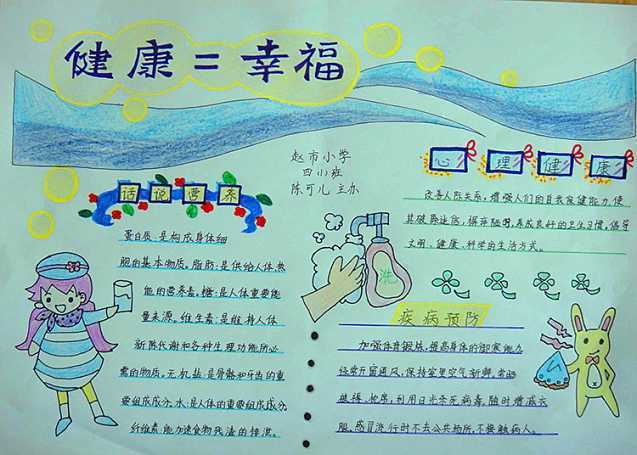 健康=幸福
赵市小学
四(1)班
陈可儿 主办
话说营养
蛋白质:是构成身体细
胞的基本物质。脂肪:是供给人体热
能的营养素。糖:是人体重要能
量来源。维生素:是维持人体
新陈代谢和各种生理功能所必
需的物质。无机盐:是骨骼和牙齿的重
要组成成分。水:是人体的重要组成成分。
纤维素:能加速食物残渣的排泄。
心理健康
改善人际关系,增强人们的自我保健能力,使
其破除迷信,摒弃陋习,养成良好的卫生习惯,倡导
文明、健康、科学的生活方式。
洗
疾病预防
加强体育锻炼,提高身体的御寒能力
经常开窗通风,保持室里空气新鲜,
利用日光杀死病毒。随时增减衣
服。感冒流行时不去公共场所,不接触病人。